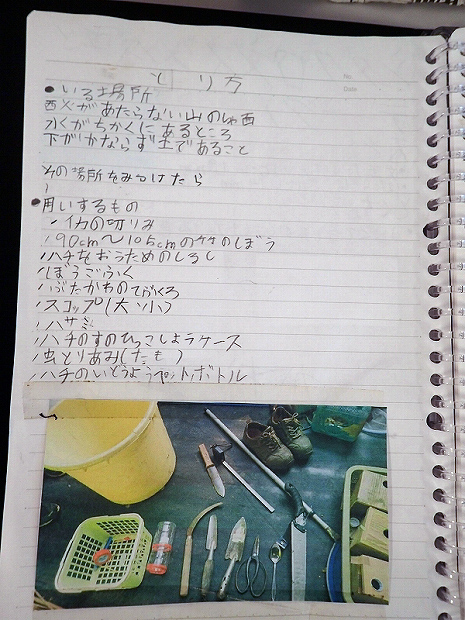 とり方
No.
Date
●いる場所
西火があたらない山のしゃ面
水がちかくにあるところ
下がかならず土であること
その場所をみつけたら
●用いするもの
イカの切りみ
90cm〜105cmの竹のぼう
ハチをおうためのしるし
ぼうごふく
ぶたかわのてぶくろ
スコップ(大小)
ハサミ
ハチのすのひっこしようケース
虫とりあみ(たも)
ハチのいどうようペットボトル